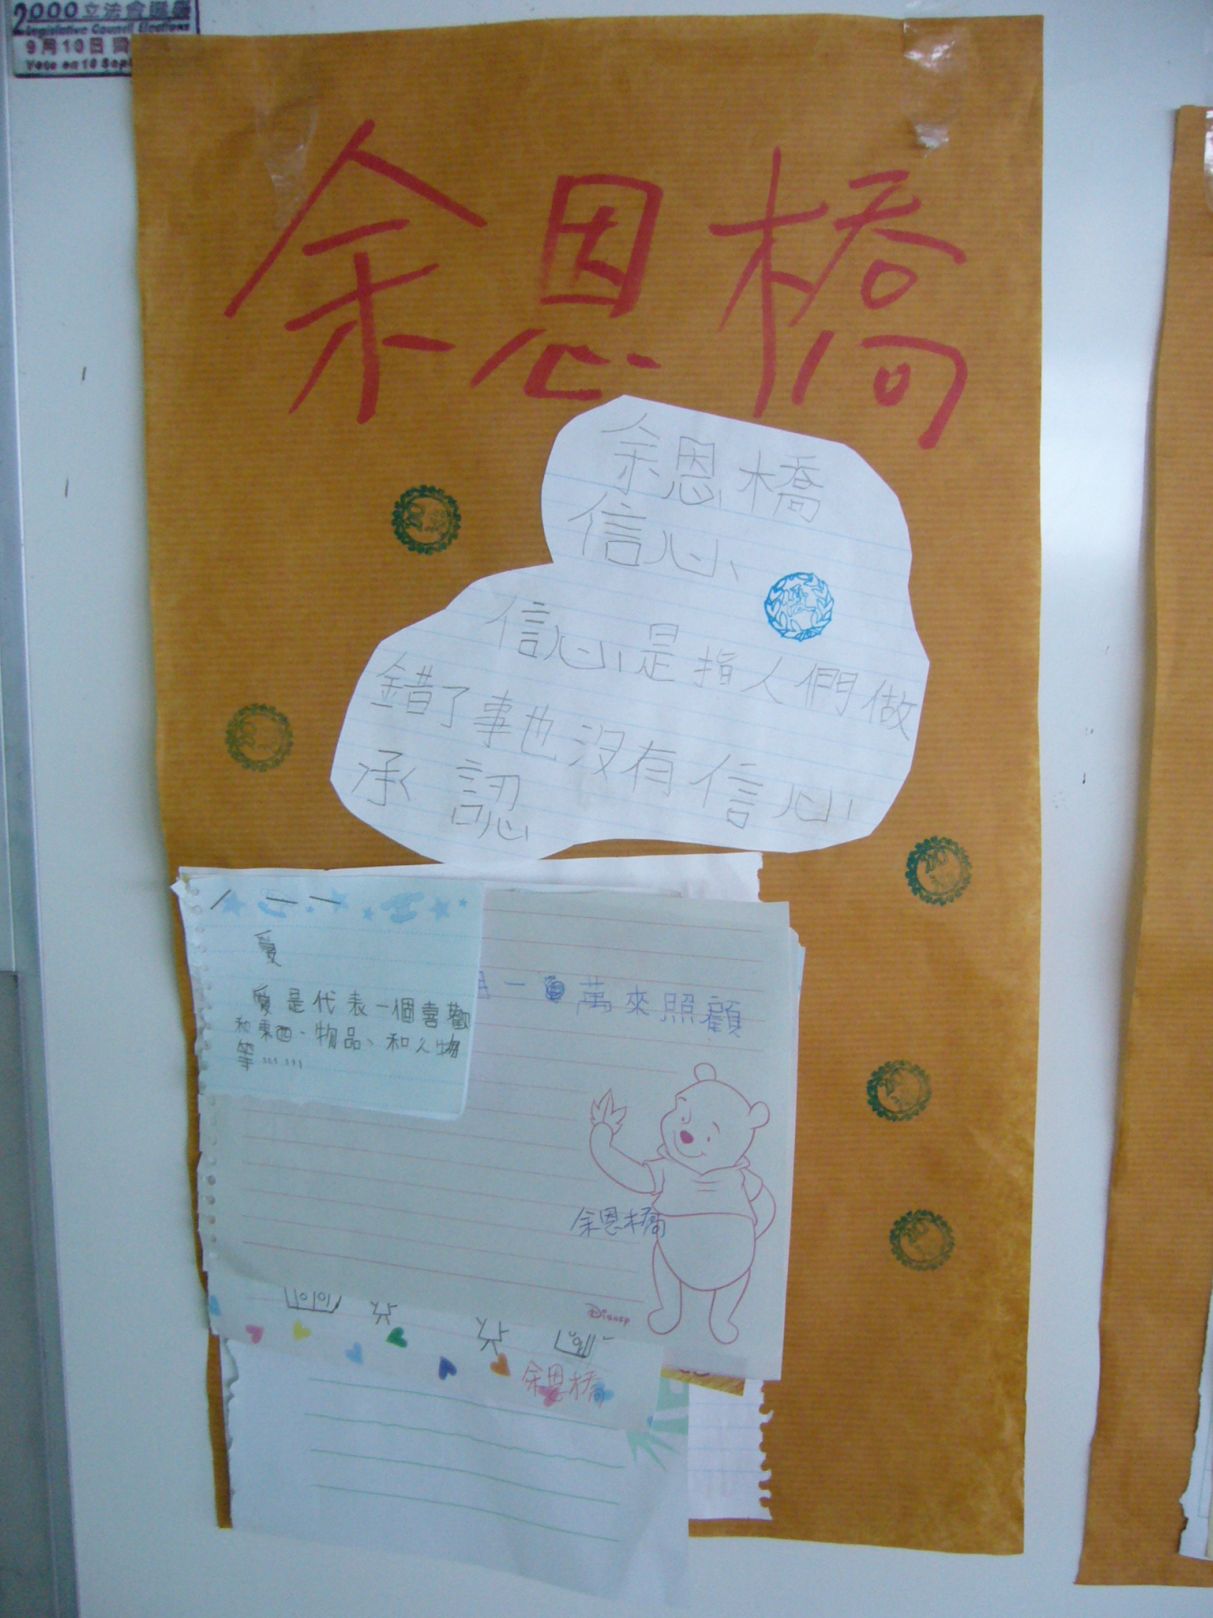 2000立法會選舉
Legislative Council Elections
9月10日
Vote on 10 Sept
余恩橋
余恩橋
信心
信心是指人們做
錯了事也沒有信心
承認
愛
愛是代表一個喜歡
和東西、物品、和人物
等……
一萬來照顧
余恩橋
Disney
余恩橋